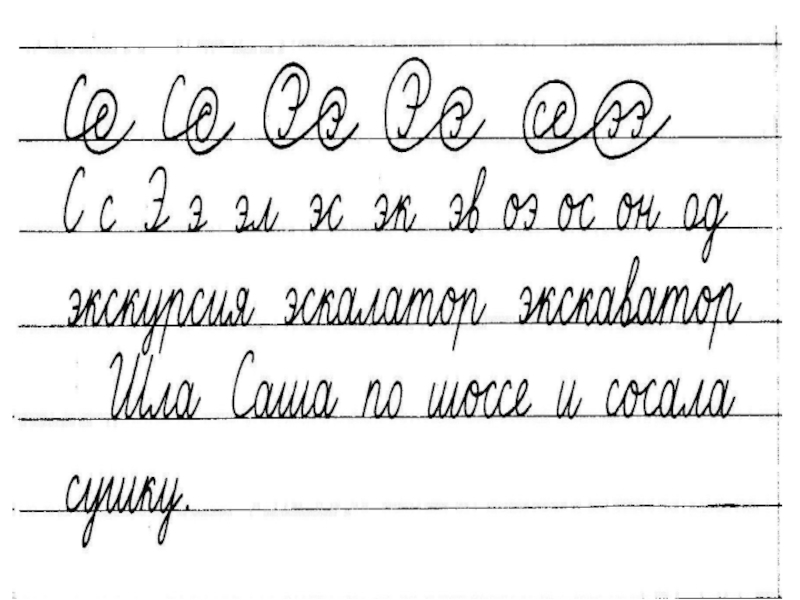 Сс Сс Ээ Ээ сс ээ
С с Э э эл эс эк эв оэ ос он од
экскурсия эскалатор экскаватор
Шла Саша по шоссе и сосала
сушку.